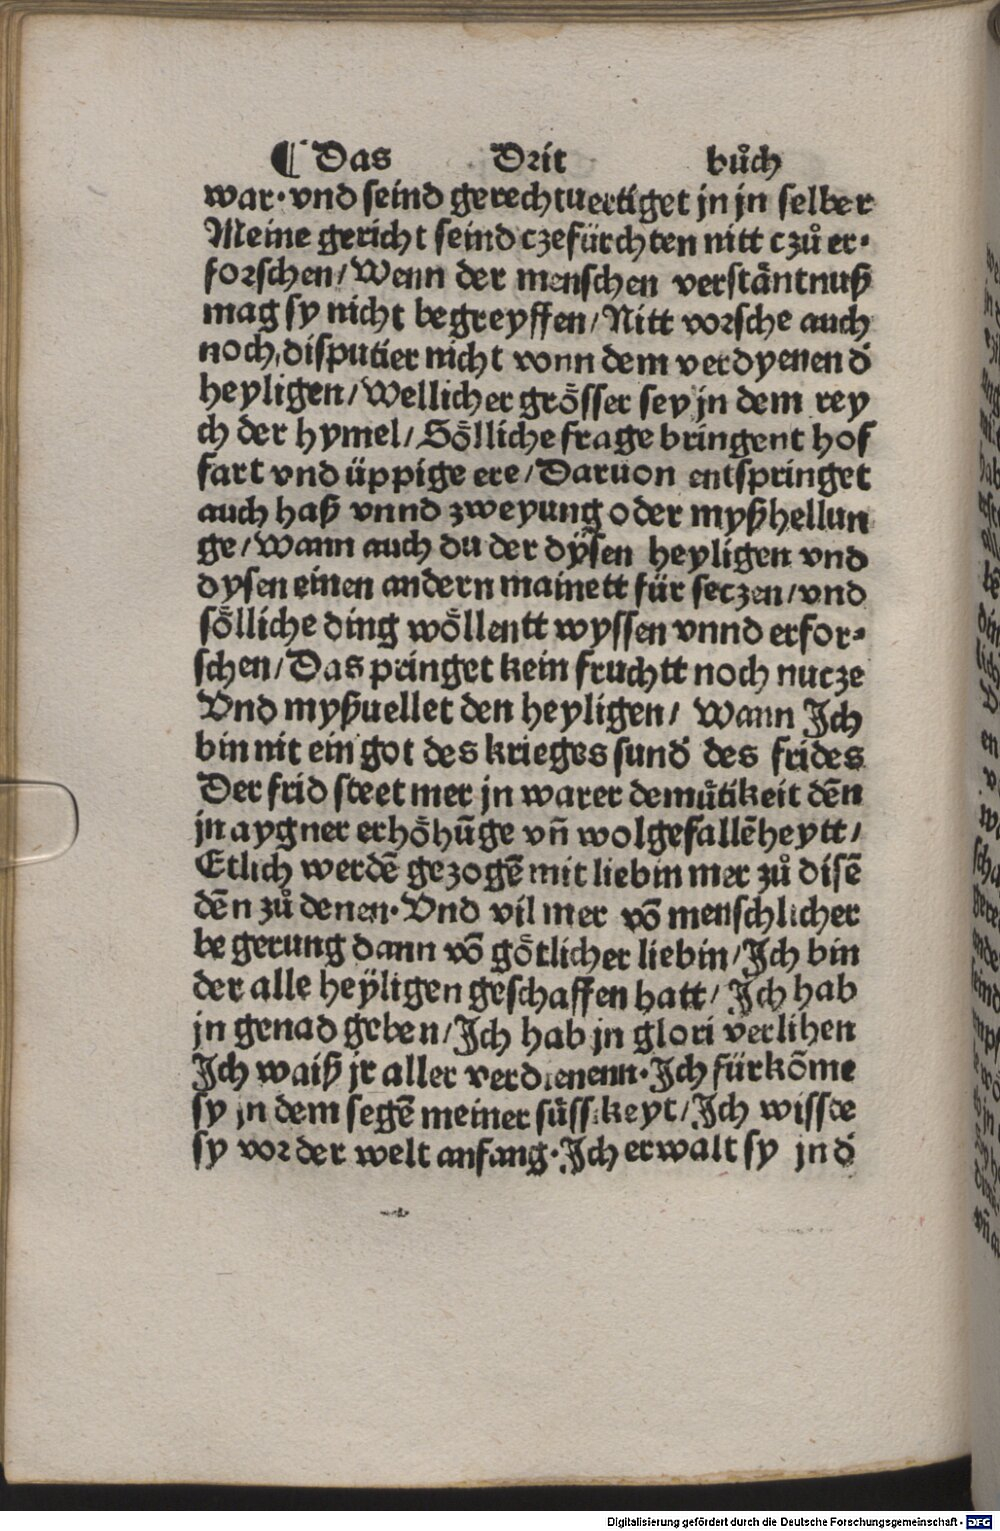 ¶ Das Drit bůch
war· vnd seind gerechtuertiget jn jn selber
Meine gericht seind czefürchten nitt czů er⸗
forschen/ Wenn der menschen verstäntnuß
mag sy nicht begreyffen/ Nitt vorsche auch
noch disputier nicht vonn dem verdyenen d̄
heyligen/ Wellicher grösser sey jn dem rey
ch der hymel/ Sölliche frage bringent hof
fart vnd üppige ere/ Daruon entspringet
auch haß vnnd zweyung oder myßhellun
ge/ Wann auch du der dÿsen heyligen vnd
dysen einen andern mainett für seczen/ vnd
sölliche ding wöllentt wyssen vnnd erfor⸗
schen/ Das pringet kein fruchtt noch nucze
Vnd myßuellet den heyligen/ Wann Jch
bin nit ein got des krieges sund̄ des frides
Der frid steet mer jn warer demůtikeit dēn
jn aygner erhöhūge vn̄ wolgefallēheytt/
Etlich werdē gezogē mit liebin mer zů disē
dēn zů denen· Vnd vil mer vō menschlicher
begerung dann vō götlicher liebin/ Jch bin
der alle heÿligen geschaffen hatt/ Jch hab
jn genad geben/ Jch hab jn glori verlihen
Jch waiß jr aller verdienenn· Jch fürkōme
sy jn dem segē meiner süssikeyt/ Jch wisste
sy vor der welt anfang· Jch erwalt sy jn d̄
Digitalisierung gefördert durch die Deutsche Forschungsgemeinschaft - DFG